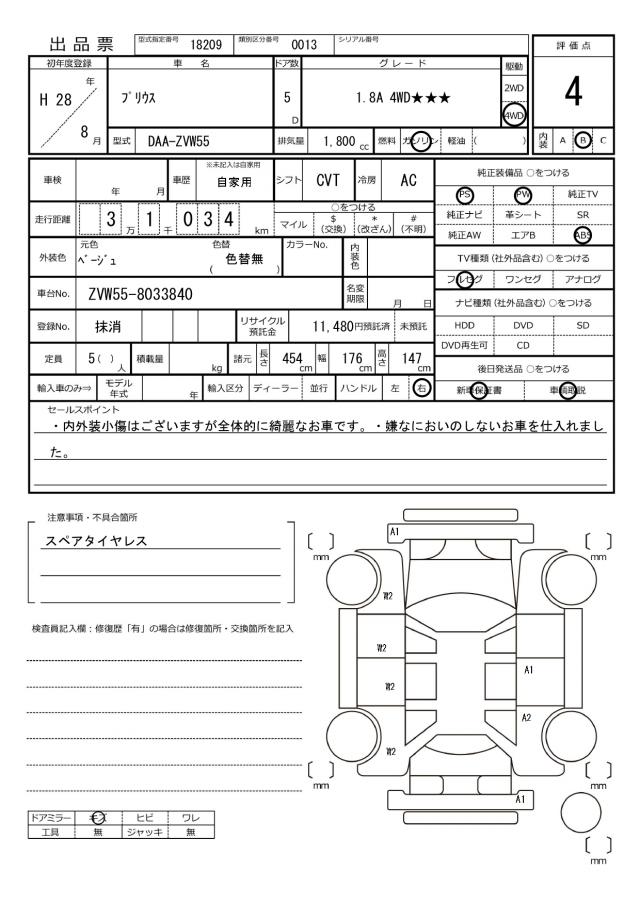 出品票 型式指定番号 18209 類別区分番号 0013 シリアル番号
初年度登録 車名 ドア数 グレード 駆動 評価点
H 28 年 8 月 プリウス 5 D 1.8A 4WD★★★ 2WD 4WD 4
型式 DAA-ZVW55 排気量 1,800 cc 燃料 ガソリン 軽油 ( ) 内装 A B C
車検 年 月 車歴 ※未記入は自家用 自家用 シフト CVT 冷房 AC
純正装備品 ○をつける
PS PW 純正TV
走行距離 3 万 1 千 0 3 4 km ○をつける マイル $ (交換) * (改ざん) # (不明)
純正ナビ 革シート SR
純正AW エアB ABS
外装色 元色 ベージュ 色替 ( 色替無 ) カラーNo. 内装色
TV種類 (社外品含む) ○をつける
フルセグ ワンセグ アナログ
車台No. ZVW55-8033840 名変期限 月 日
ナビ種類 (社外品含む) ○をつける
登録No. 抹消 リサイクル預託金 11,480円預託済 未預託
HDD DVD SD
DVD再生可 CD
定員 5 ( ) 人 積載量 kg 諸元 長さ 454 cm 幅 176 cm 高さ 147 cm
後日発送品 ○をつける
輸入車のみ⇒ モデル年式 年 輸入区分 ディーラー 並行 ハンドル 左 右
新車保証書 車輌取説
セールスポイント
・内外装小傷はございますが全体的に綺麗なお車です。・嫌なにおいのしないお車を仕入れまし
た。
注意事項・不具合箇所
スペアタイヤレス
検査員記入欄：修復歴「有」の場合は修復箇所・交換箇所を記入
A1
mm
mm
W2
W2
A1
W2
A2
W2
mm
mm
A1
mm
ドアミラー キズ ヒビ ワレ
工具 無 ジャッキ 無